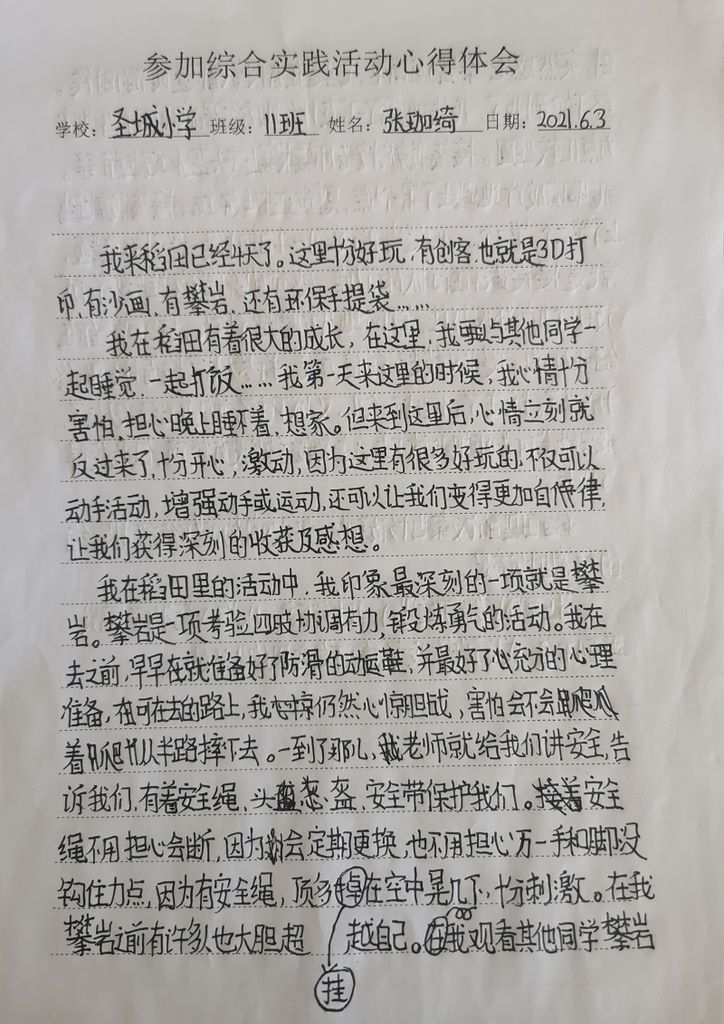 参加综合实践活动心得体会
学校：圣城小学 班级：11班 姓名：张珈绮 日期：2021.6.3
我来稻田已经4天了。这里十分好玩，有创客，也就是3D打
印，有沙画，有攀岩，还有环保手提袋……
我在稻田有着很大的成长，在这里，我要与其他同学一
起睡觉，一起打饭……我第一天来这里的时候，我心情十分
害怕，担心晚上睡不着，想家。但来到这里后，心情立刻就
反过来了，十分开心，激动，因为这里有很多好玩的，不仅可以
动手活动，增强动手或运动，还可以让我们变得更加自律，
让我们获得深刻的收获及感想。
我在稻田里的活动中，我印象最深刻的一项就是攀
岩。攀岩是一项考验四肢协调有力，锻炼勇气的活动。我在
去之前，早早在就准备好了防滑的运动鞋，并最好了心充分的心理
准备，可在去的路上，我仍然心惊胆战，害怕会不会爬
着爬从半路摔下去。一到了那儿，老师就给我们讲安全，告
诉我们，有着安全绳、头盔、安全带保护我们。接着安全
绳不用担心会断，因为会定期更换，也不用担心万一手和脚没
钩住力点，因为有安全绳，顶多掉在空中晃几下，十分刺激。在我
攀岩之前有许多人也大胆超 越自己。在我观看其他同学攀岩
挂